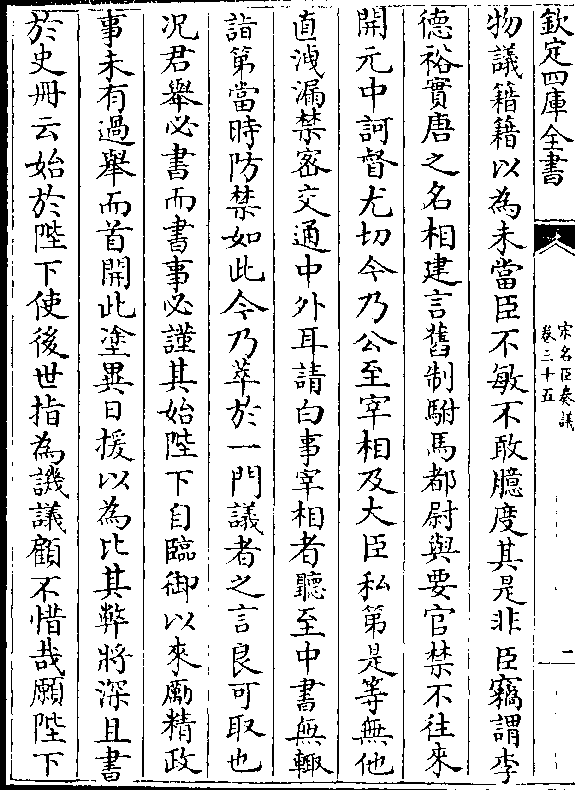 欽定四庫全書
宋名臣奏議
卷三十五
二
物議籍籍以為未當臣不敏不敢臆度其是非臣竊謂李
德裕實唐之名相建言舊制駙馬都尉與要官禁不往來
開元中訶督尤切今乃公至宰相及大臣私第是等無他
直洩漏禁宻交通中外耳請白事宰相者聽至中書無輙
詣第當時防禁如此今乃萃於一門議者之言良可取也
况君舉必書而書事必謹其始陛下自臨御以來勵精政
事未有過舉而首開此塗異日援以為比其弊將深且書
於史冊云始於陛下使後世指為譏議顧不惜哉願陛下